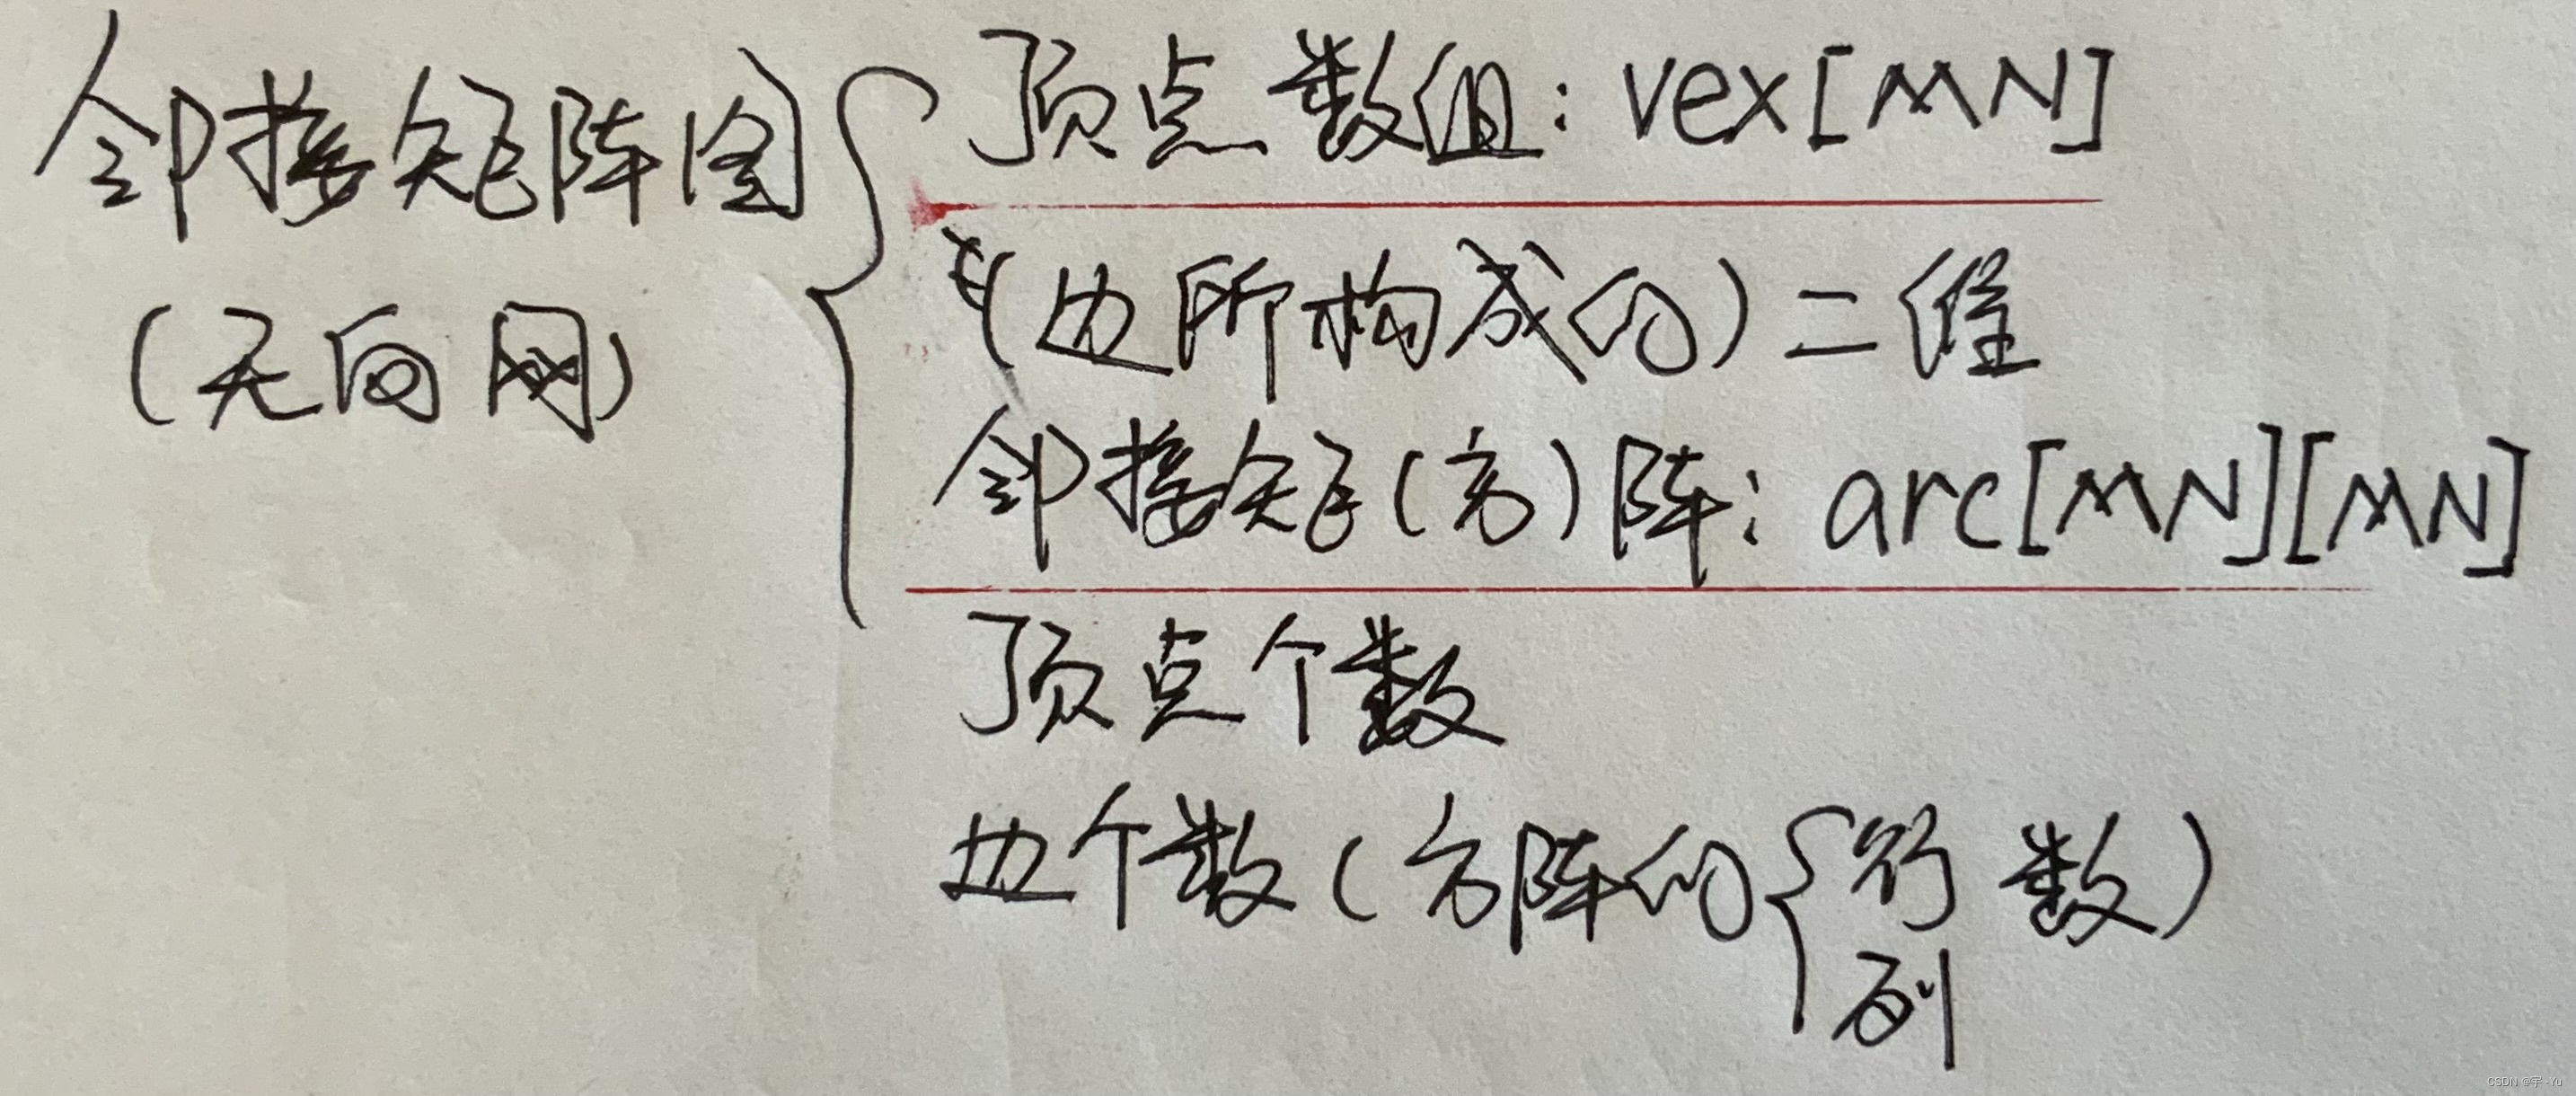 邻接矩阵图
(无向网)
顶点数组: vex[MN]
(边所构成的)二维
邻接矩(方)阵: arc[MN][MN]
顶点个数
边个数(方阵的{行 数)
列
CSDN @宇-Yu